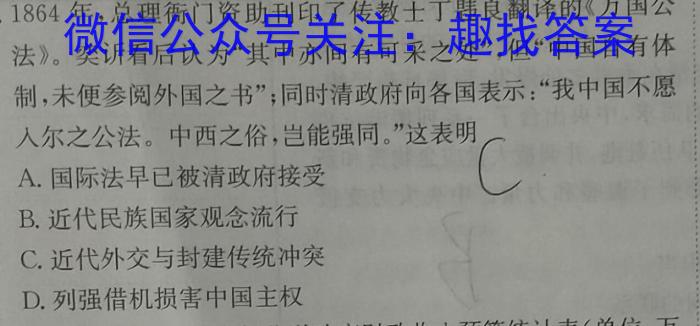 1864年,总理衙门资助刊印了传教士丁韪良翻译的《万国公
微信公众号关注：趣找答案
法》。奕䜣看后认为"其中亦间有可采之处",但"中国自有体
制,未便参阅外国之书";同时清政府向各国表示:"我中国不愿
入尔之公法。中西之俗,岂能强同。"这表明
C
A. 国际法早已被清政府接受
B. 近代民族国家观念流行
C. 近代外交与封建传统冲突
D. 列强借机损害中国主权